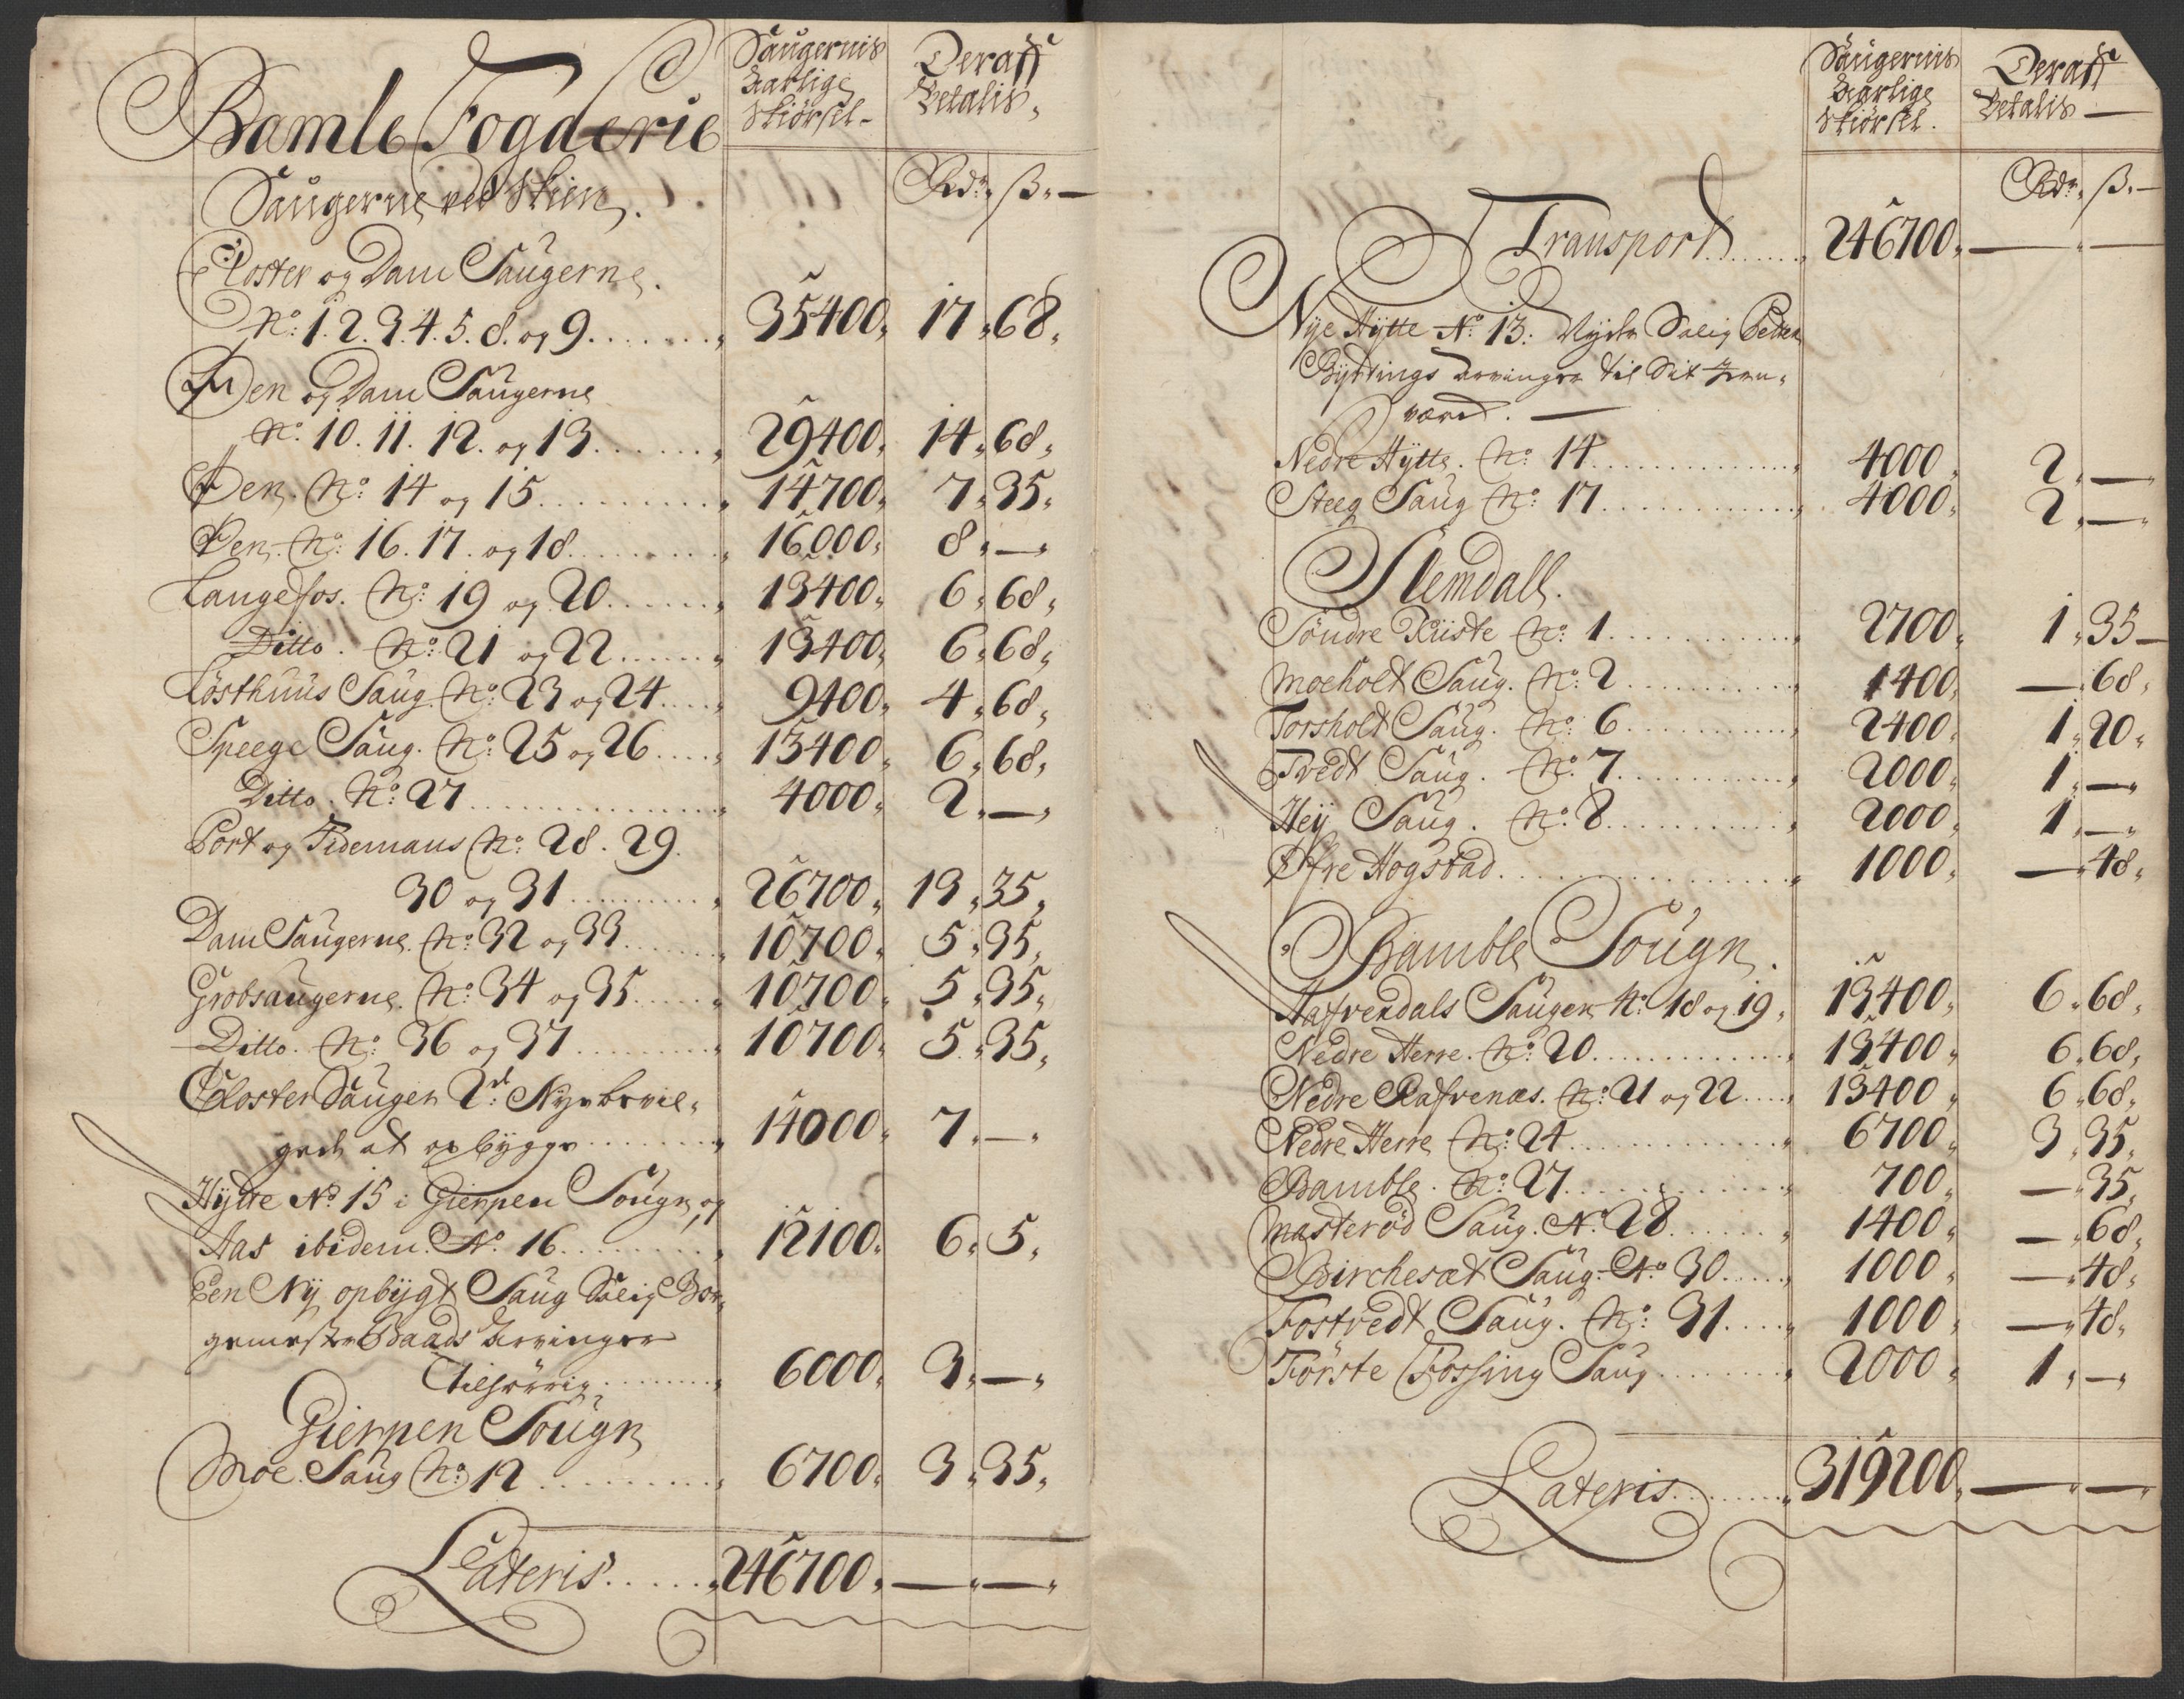 Bamle Fogderie
Saugernis Aarlige Skiørsel
Deraff Betalis
Rdr. ß.
Saugerne ved Skien.
Closter og Dam Saugerne.
No: 1. 2. 3. 4. 5. 8. og 9. 35400. 17. 68.
Øen og Dam Saugerne
No. 10. 11. 12. og 13. 29400. 14. 68.
Øen. No: 14 og 15. 14700. 7. 35.
Øen. No: 16. 17. og 18. 16000. 8. —
Langefos. No: 19 og 20. 13400. 6. 68.
Ditto. No: 21 og 22. 13400. 6. 68.
Løsthuus Saug. No: 23 og 24. 9400. 4. 68.
Speege Saug. No: 25 og 26. 13400. 6. 68.
Ditto. No: 27. 4000. 2. —
Port og Tidemans No: 28. 29.
30 og 31. 26700. 13. 35.
Dam Saugerne. No: 32 og 33. 10700. 5. 35.
Grobsaugerne. No: 34 og 35. 10700. 5. 35.
Ditto. No: 36 og 37. 10700. 5. 35.
Closter Sauger 2de Nye bevil-
get at opbygge 14000. 7. —
Hytte No. 15 i Gierpen Sougn og
Aas ibidem. No. 16. 12100. 6. 5.
Een Ny opbygt Saug Salig Bor-
gemester Baads Arvinger
Tilhørrig. 6000. 3. —
Gierpen Sougn
Moe Saug No: 12. 6700. 3. 35.
Lateris. 246700. — —
Saugernis Aarlige Skiørsel.
Deraff Betalis
Rdr. ß.
Transport 246700. — —
Nye Hytte No. 13. Nyder Salig Peder
Byrtings Arvinger til Sit Jern-
værck. —
Nedre Hytte. No: 14. 4000. 2. —
Steeg Saug No: 17. 4000. 2. —
Slemdall.
Søndre Riiste No: 1. 2700. 1. 35
Moeholt Saug. No: 2. 1400. — 68.
Torsholt Saug. No: 6. 2400. 1. 20.
Tvedt Saug. No. 7. 2000. 1. —
Heij Saug. No: 8. 2000. 1. —
Øfre Hogstad. 1000. — 48.
Bamble Sougn.
Aafvendals Sauger No: 18 og 19. 13400. 6. 68.
Nedre Herre. No: 20. 13400. 6. 68.
Nedre Rafvenæs. No: 21 og 22. 13400. 6. 68.
Nedre Herre No: 24. 6700. 3. 35.
Bamble. No: 27. 700. — 35.
Masterød Saug. No. 28. 1400. — 68.
Birchesæt Saug. No. 30. 1000. — 48.
Fostvedt Saug. No: 31. 1000. — 48.
Første Fossing Saug 2000. 1. —
Lateris 319200. — —